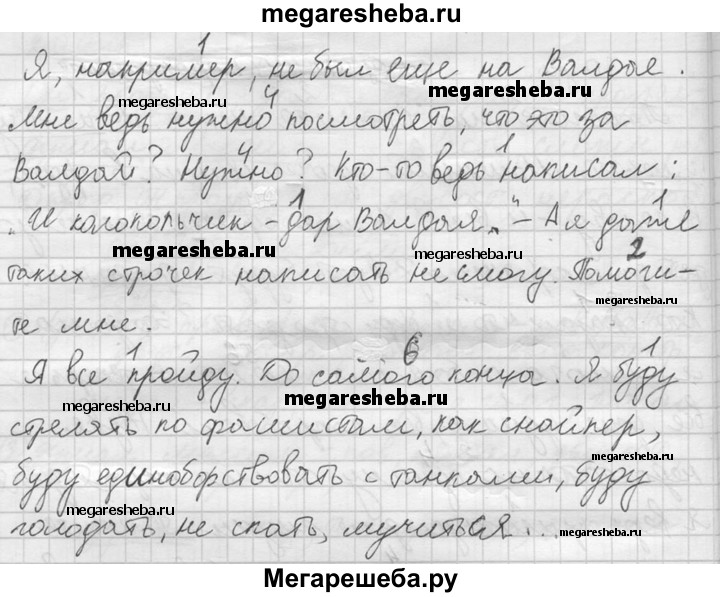 megaresheba.ru
Я, например, не был еще на Валдае.
1
megaresheba.ru megaresheba.ru
4
Мне ведь нужно посмотреть, что это за
4 1
Валдай? Нужно? Кто-то ведь написал:
megaresheba.ru megaresheba.ru
1 1
„И колокольчик - дар Валдая„ - А я даже
megaresheba.ru megaresheba.ru
2
таких строчек написать не смогу. Помоги-
megaresheba.ru
те мне.
1 6 1
Я все пройду. До самого конца. Я буду
megaresheba.ru megaresheba.ru megaresheba.ru
стрелять по фашистам, как снайпер,
буду единоборствовать с танками, буду
megaresheba.ru megaresheba.ru
голодать, не спать, мучиться...
megaresheba.ru
Мегарешеба.ру